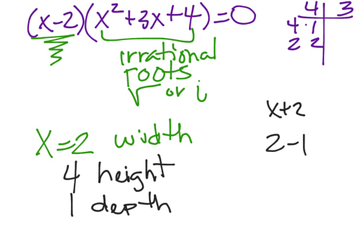 (x-2)(x²+3x+4)=0
4 3
4·1
2 2
irrational
roots
√ or i
x+2
x=2 width
2-1
4 height
1 depth